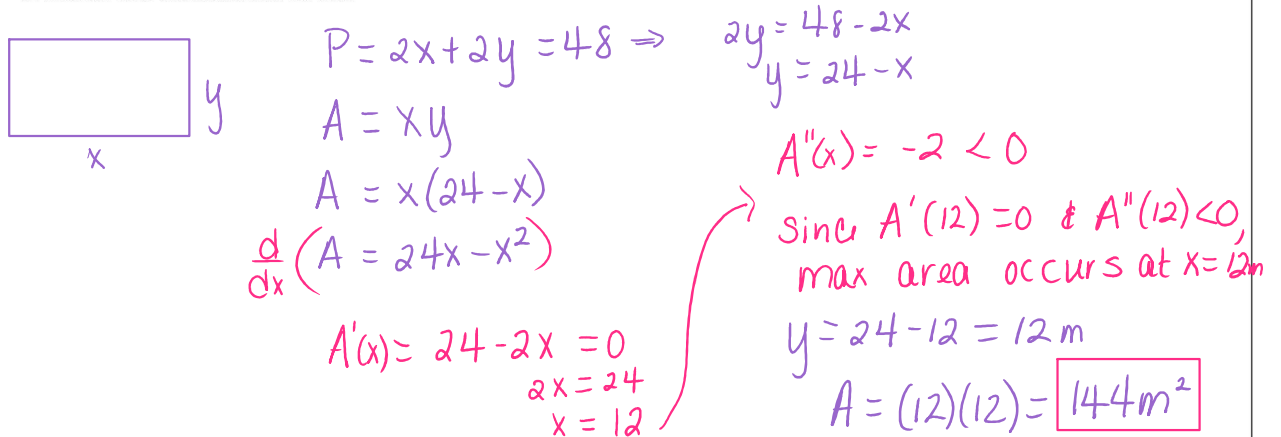 y
x
P = 2x + 2y = 48 ⇒
A = xy
A = x(24 - x)
d/dx (A = 24x - x²)
A'(x) = 24 - 2x = 0
2x = 24
x = 12
2y = 48 - 2x
y = 24 - x
A''(x) = -2 < 0
since A'(12) = 0 & A''(12) < 0,
max area occurs at x = 12m
y = 24 - 12 = 12 m
A = (12)(12) = 144m²